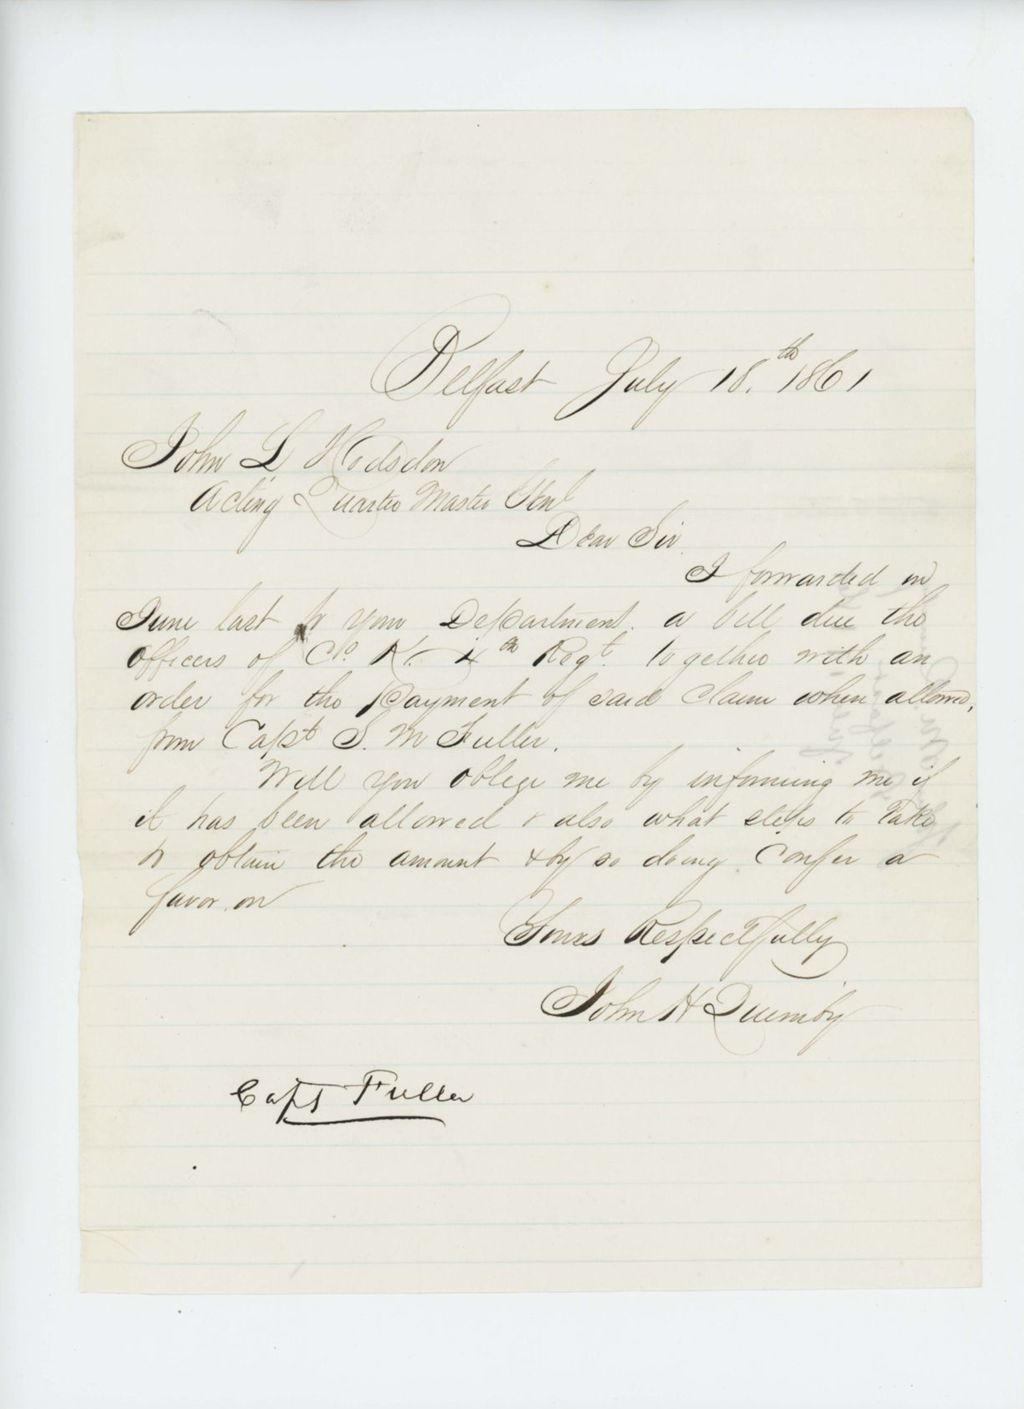 Belfast July 18.th 1861
John L Hodsdon
Acting Quarter Master Genl
Dear Sir
I forwarded in
June last to your Department. a bill due the
officers of Co. K. 4th Regt. together with an
order for the Payment of said Claim when allowed,
from Capt S. M Fuller.
Will you oblige me by informing me if
it has been allowed & also what steps to take
to obtain the amount & by so doing Confer a
favor on
Yours Respectfully
John H Quimby
Capt Fuller